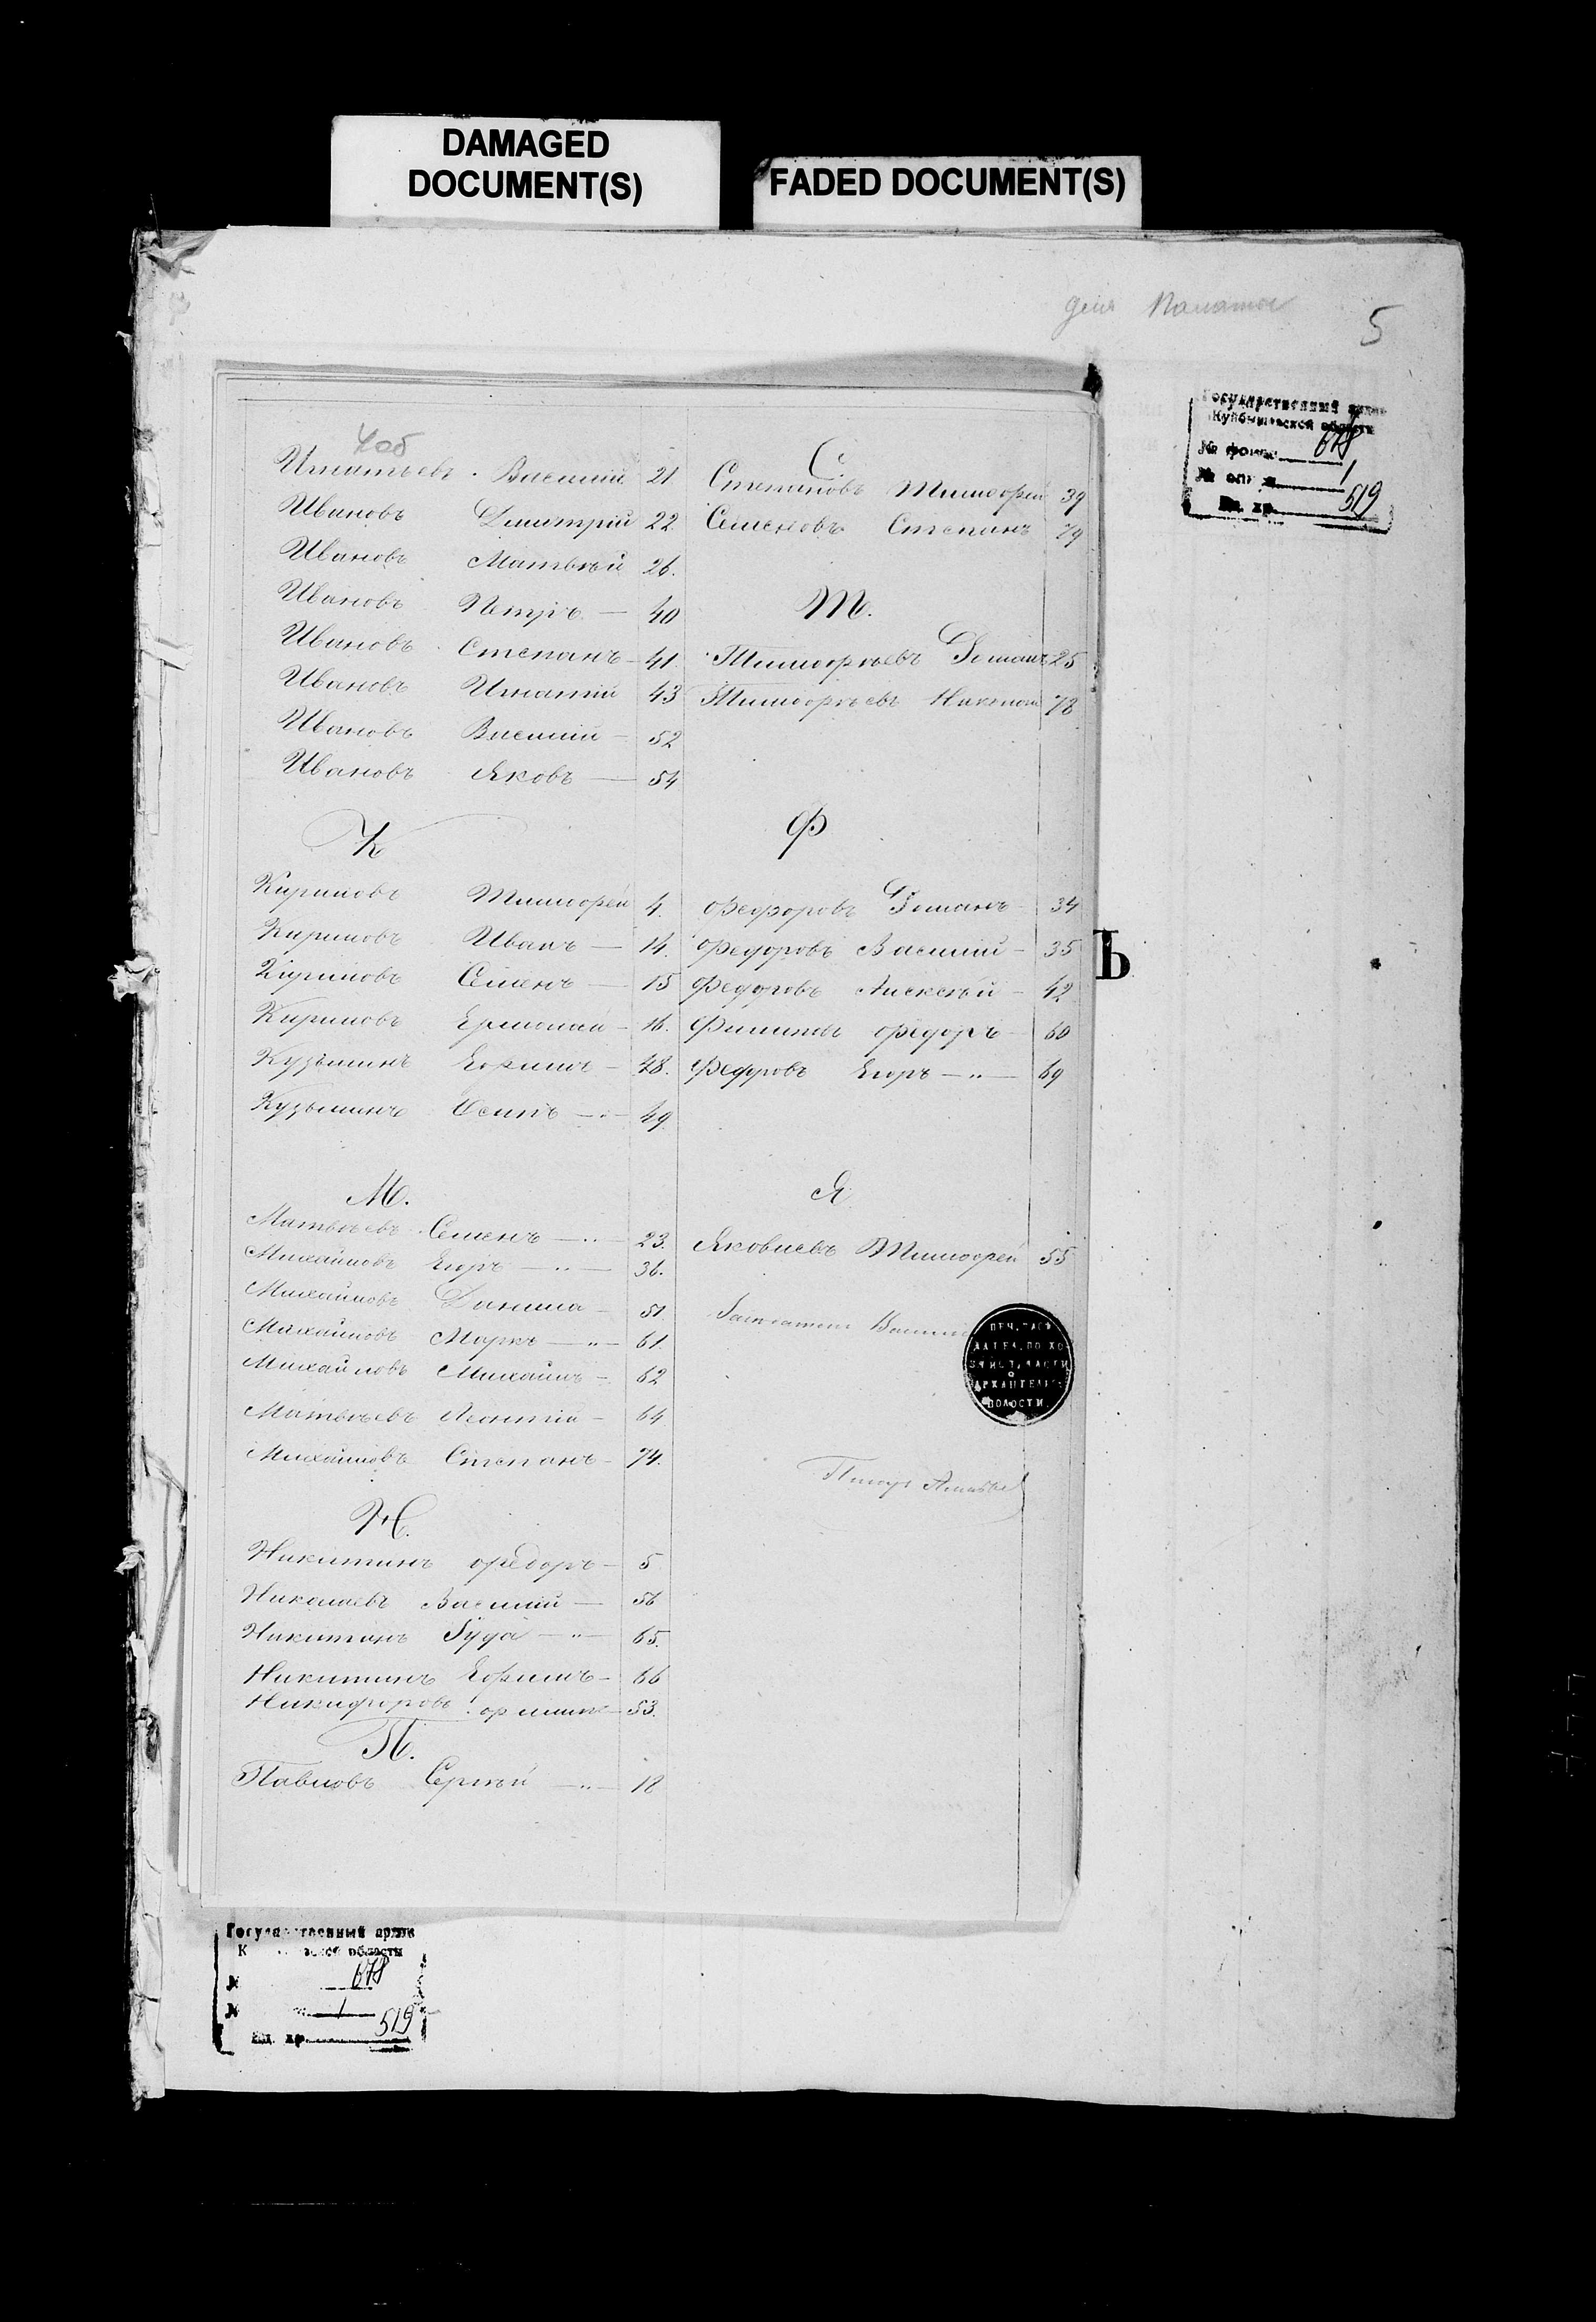 DAMAGED
DOCUMENT(S)
FADED DOCUMENT(S)
для Палаты
5
Государственный архив
Куйбышевской области
№ фонда 678
№ описи 1
Ед. хр. 519
4об
Игнатьевъ Василий 21
Ивановъ Дмитрий 22
Ивановъ Матвѣй 26.
Ивановъ Петръ — 40
Ивановъ Степанъ — 41.
Ивановъ Игнатий 43
Ивановъ Василий — 52
Ивановъ Яковъ — 54
К
Кириловъ Тимофей 4.
Кириловъ Иванъ — 14.
Кириловъ Семенъ — 15
Кириловъ Ермолай — 16.
Кузьминъ Ефимъ — 48.
Кузьминъ Осипъ — 49
М.
Матвѣевъ Семенъ — 23.
Михайловъ Егоръ — 36.
Михайловъ Данила — 51.
Михайловъ Маркъ — 61.
Михайловъ Михайлъ — 62
Матвѣевъ Леонтий — 64
Михайловъ Степанъ — 74.
Н.
Никитинъ Федоръ — 5
Николаевъ Василий — 56
Никитинъ Iуда — 65.
Никитинъ Ефимъ — 66
Никифоровъ Филипъ — 53.
П.
Павловъ Сергѣй — 18
С.
Степановъ Тимофей 39
Семеновъ Степанъ 79
Т.
Тимофѣевъ Романъ 25
Тимофѣевъ 78
Ф
Федоровъ Романъ 34
Федоровъ Василий — 35
Федоровъ Алексѣй — 42
Филиповъ Федоръ — 60
Федоровъ Егоръ — 69
Я
Яковлевъ Тимофей 55
Василий
ПЕЧ. ЗАСѢ
ДАТЕЛ. ПО ХО
ЗЯЙСТ. ЧАСТИ
АРХАНГЕЛЬС
ВОЛОСТИ.
Писарь
Ъ
Государственный архив
К ской области
№ 678
№ 1
Ед. хр. 519